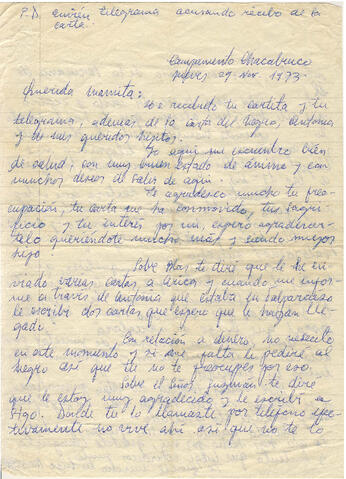 P.D. Envíen telegrama acusando recibo de la
carta.
Campamento Chacabuco
Jueves 29 Nov 1973.
Querida mamita:
He recibido tu cartita y tu
telegrama, además de la carta del Negro, Antonia
y de mis queridos
Yo aquí me encuentro bien
de salud, con muy buen estado de ánimo y con
muchos deseos de salir de aquí.
Te agradesco mucho tu preo-
cupación, tu carta que ha conmovido, tus sacri-
ficio y tu interés por mí, espero agradecer-
télo queriéndote mucho más y siendo mejor
hijo
Sobre Blas te diré que le he en-
viado varias cartas a Arica y cuando me infor-
mé a través de Antonia que estaba en Valparaíso
le escribí dos cartas que espero que le hayan lle-
gado.
En relación a dinero, no necesito
en este momento y si me falta le pediré al
Negro así que tu no te preocupes por eso.
Sobre el Señor Guzmán te diré
que le estoy muy agradecido y le escribí a
Donde tu lo llamaste por teléfono efec-
tivamente no vive ahí así que no te lo